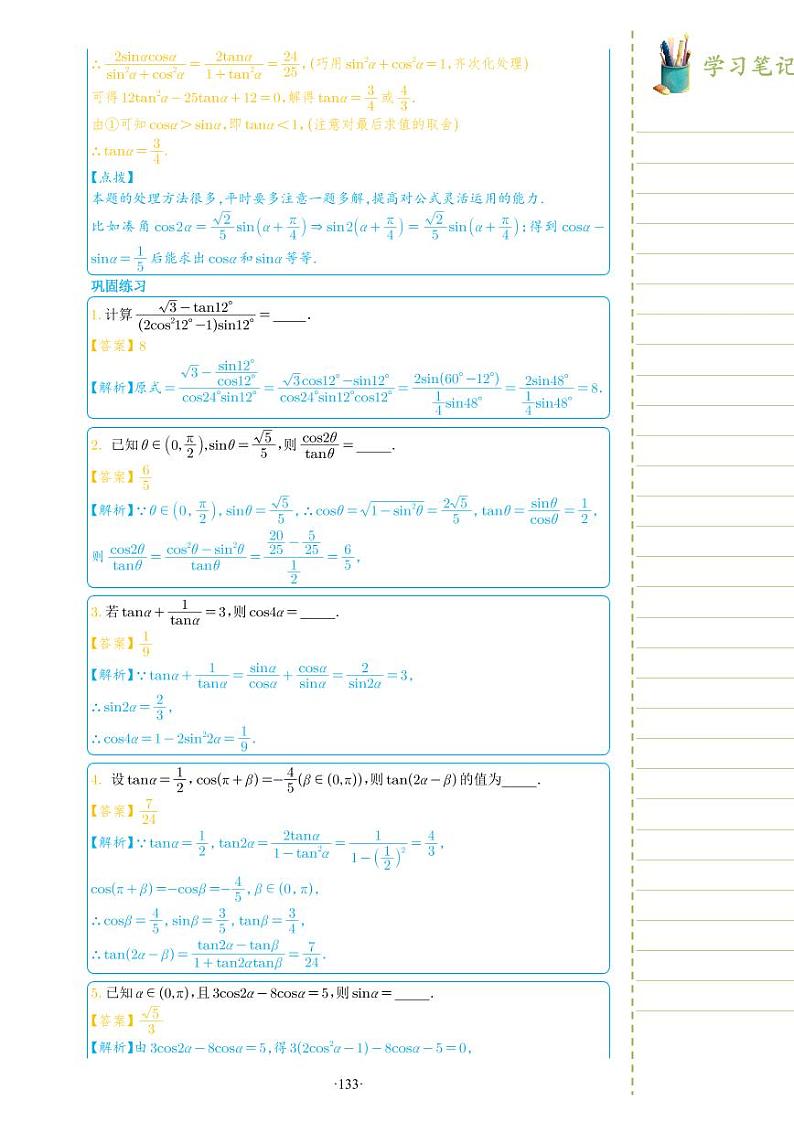 ∴ 2sinαcosα/(sin²α+cos²α) = 2tanα/(1+tan²α) = 24/25, (巧用sin²α+cos²α=1,齐次化处理)
可得12tan²α-25tanα+12=0,解得tanα=3/4或4/3.
由①可知cosα>sinα,即tanα<1, (注意对最后求值的取舍)
∴tanα=3/4.
【点拨】
本题的处理方法很多,平时要多注意一题多解,提高对公式灵活运用的能力.
比如凑角cos2α=√2/5 sin(α+π/4)⇒sin2(α+π/4)=√2/5 sin(α+π/4);得到cosα-
sinα=1/5后能求出cosα和sinα等等.
巩固练习
1.计算 (√3-tan12°)/((2cos²12°-1)sin12°)=____.
【答案】8
【解析】原式=(√3-sin12°/cos12°)/(cos24°sin12°)=(√3cos12°-sin12°)/(cos24°sin12°cos12°)=2sin(60°-12°)/(1/4 sin48°)=2sin48°/(1/4 sin48°)=8.
2. 已知θ∈(0,π/2),sinθ=√5/5,则cos2θ/tanθ=____.
【答案】6/5
【解析】∵θ∈(0,π/2), sinθ=√5/5, ∴cosθ=√(1-sin²θ)=2√5/5, tanθ=sinθ/cosθ=1/2,
则cos2θ/tanθ=(cos²θ-sin²θ)/tanθ=(20/25-5/25)/(1/2)=6/5,
3.若tanα+1/tanα=3,则cos4α=____.
【答案】1/9
【解析】∵tanα+1/tanα=sinα/cosα+cosα/sinα=2/sin2α=3,
∴sin2α=2/3,
∴cos4α=1-2sin²2α=1/9.
4. 设tanα=1/2, cos(π+β)=-4/5(β∈(0,π)),则tan(2α-β)的值为____.
【答案】7/24
【解析】∵tanα=1/2, tan2α=2tanα/(1-tan²α)=1/(1-(1/2)²)=4/3,
cos(π+β)=-cosβ=-4/5, β∈(0,π),
∴cosβ=4/5, sinβ=3/5, tanβ=3/4,
∴tan(2α-β)=(tan2α-tanβ)/(1+tan2αtanβ)=7/24.
5.已知α∈(0,π),且3cos2α-8cosα=5,则sinα=____.
【答案】√5/3
【解析】由3cos2α-8cosα=5,得3(2cos²α-1)-8cosα-5=0,
·133·
学习笔记